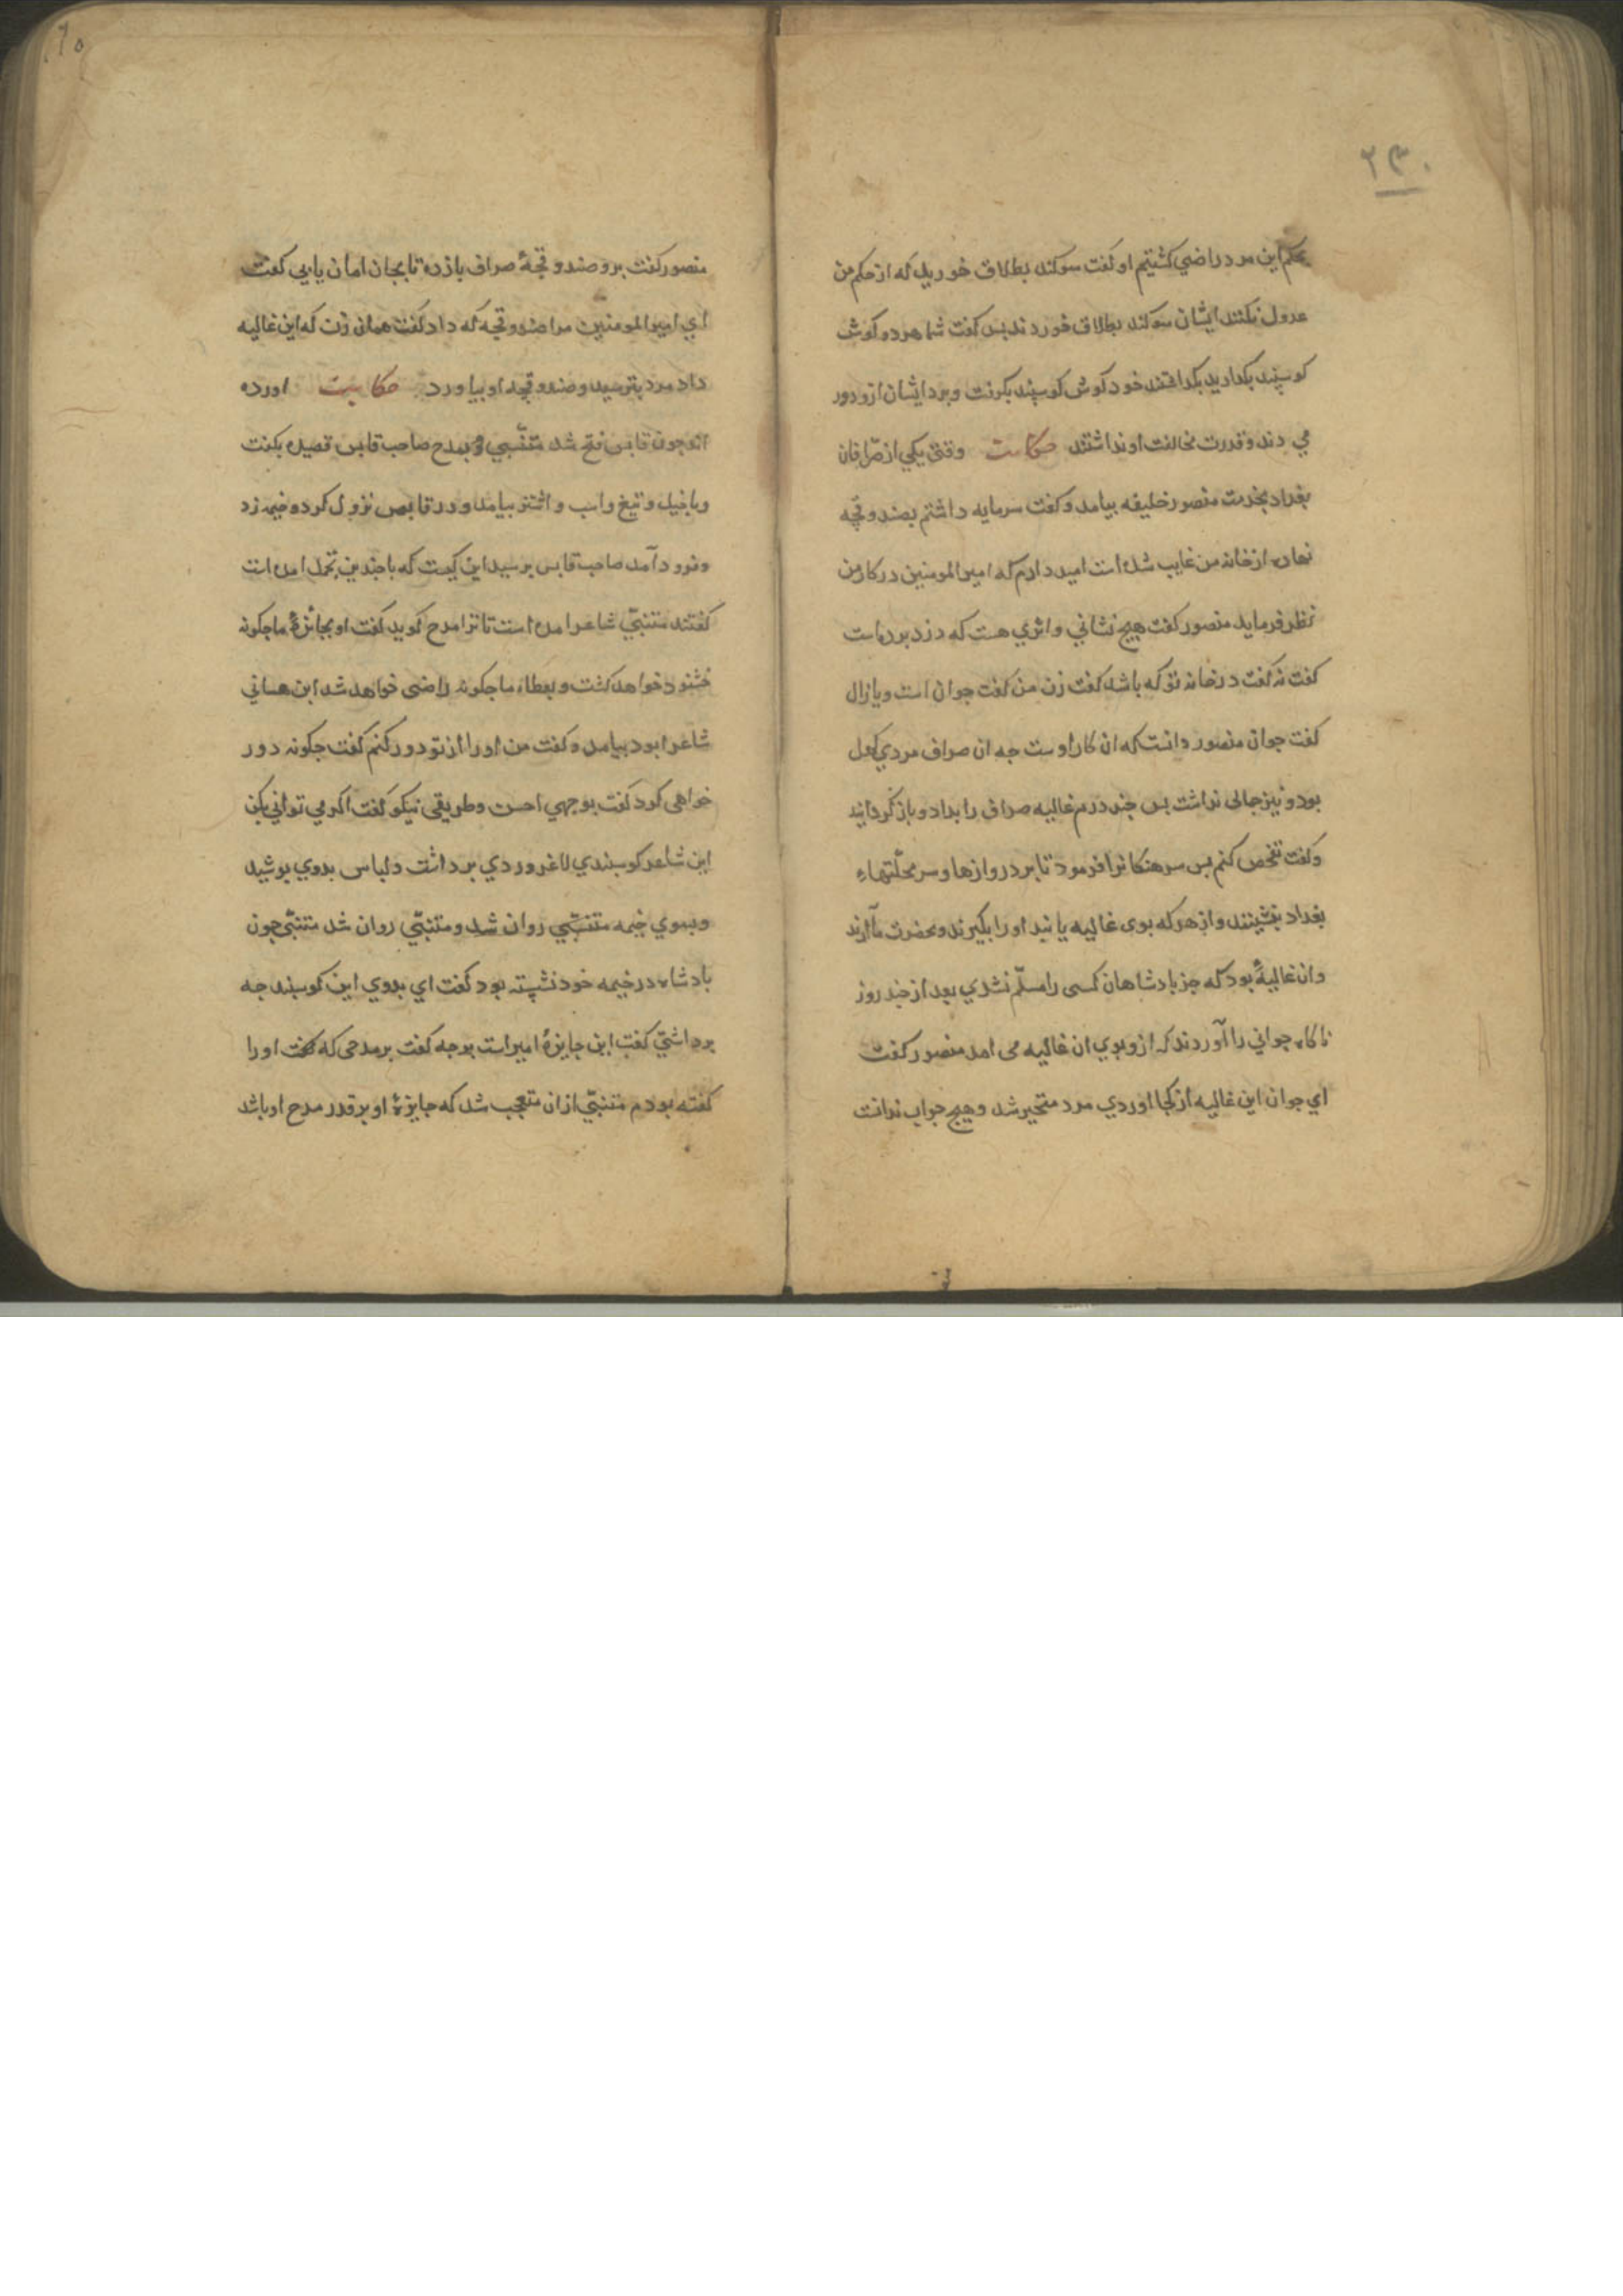 ۲۳۰
بحکم این مرد راضی کشتیم او کفت سوکند بطلاق خورید که از حکم من
عدول نکنند ایشان سوکند بطلاق خوردند بس کفت شما هردو کوش
کوسپند بکدارید بکداشتند خود کوش کوسپند بکرفت و ببرد ایشان ازو دور
می دند و قدرت مخالفت او نداشتند حکایت وقتی یکی از صرّافان
بغداد بخدمت منصور خلیفه بیامد و کفت سرمایه داشتم بصندوقچه
نهاده از خانه من غایب شده است امید دارم که امیرالمومنین در کار من
نظر فرماید منصور کفت هیچ نشانی و اثری هست که دزد برده است
کفت نه کفت در خانه تو که باشد کفت زن من کفت جوان است و یا زال
کفت جوان منصور دانست که ان کار اوست جه ان صراف مردی کهل
بود و نیز جمالی نداشت بس جند درم غالیه صراف را بداد و باز کردانید
و کفت تفحص کنم بس سرهنکانرا فرمود تا بر دروازها و سر محلّتهاء
بغداد بنشینند و از هر که بوی غالیه یابند او را بکیرند و بحضرت ما آرند
و ان غالیهٔ بود که جز بادشاهان کسی را مسلّم نشدی بعد از جند روز
ناکاه جوانی را آوردند که ازو بوی ان غالیه می امد منصور کفت
ای جوان این غالیه از کجا اوردی مرد متحیر شد و هیچ جواب ندانت
منصور کفت برو صندوقچهٔ صراف باز ده تا بجان امان یابی کفت
ای امیرالمومنین مرا صندوقچه که داد کفت همان زن که این غالیه
داد مرد بترسید و صندوقچه او بیاورد حکایت اورده
اند جون قابس فتح شد متنبّی بمدح صاحب قابس قصیده بکفت
و با خیل و تیغ و اسب و اشتر بیامد و در قابس نزول کرد و خیمه زد
و فرود آمد صاحب قابس برسید این کیست که با جندین تجمل امده است
کفتند متنبّی شاعر امده است تا ترا مدح کوید کفت او بجائزهٔ ما جکونه
خشنود خواهد کشت و بعطاء ما جکونه راضی خواهد شد ابن هسانی
شاعر ابود بیامد و کفت من او را از تو دور کنم کفت جکونه دور
خواهی کرد کفت بوجهی احسن و طریقی نیکو کفت اکر می توانی بکن
این شاعر کوسبندی لاغر و ردی برداشت و لباس بدوی بوشید
و بسوی خیمه متنبّی روان شد و متنبّی روان شد متنبّی جون
بادشاه در خیمه خود نشسته بود کفت ای بدوی این کوسبند جه
برداشتی کفت این جایزهٔ امیر است بر جه کفت بر مدحی که کفت او را
کفته بودم متنبّی از ان متعجب شد که جایزهٔ او بر قدر مدح او باشد